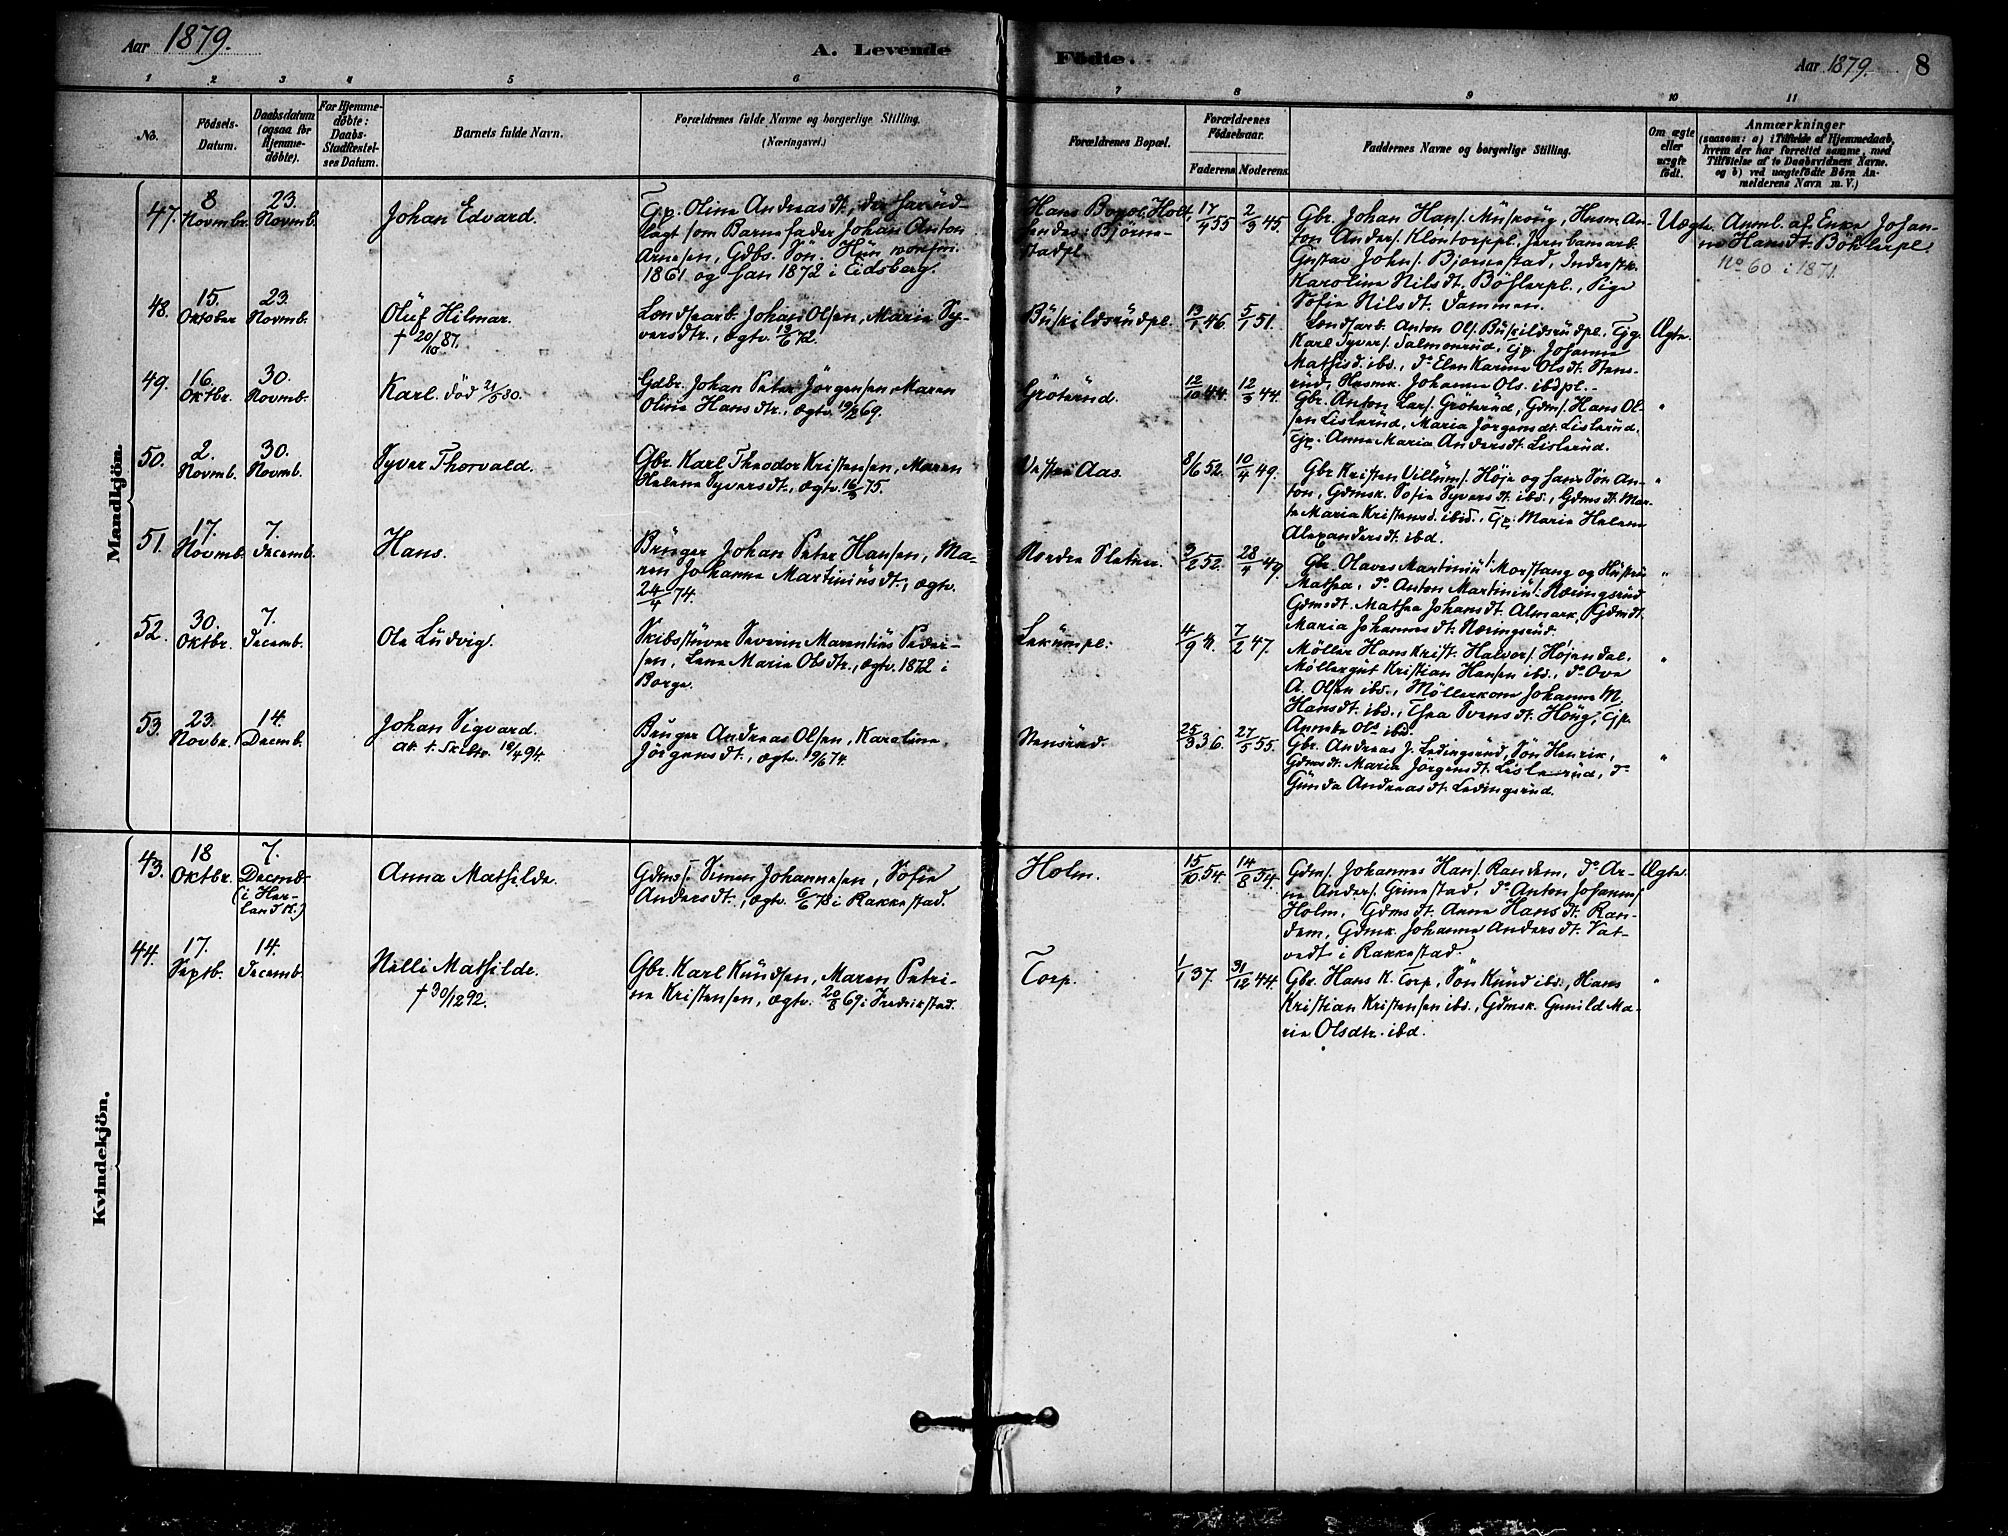 Aar 1879.
A. Levende
Födte.
Aar 1879.
8
1 2 3 4 5 6 7 8 9 10 11
No.
Födsels-
Datum.
Daabsdatum
(ogsaa for
Hjemme-
døbte).
For Hjemme-
døbte:
Daabs-
Stadfæstel-
ses Datum.
Barnets fulde Navn.
Forældrenes fulde Navne og borgerlige Stilling.
(Næringsvei.)
Forældrenes Bopæl.
Forældrenes
Födselsaar.
Faderens Moderens
Faddernes Navne og borgerlige Stilling.
Om ægte
eller
uægte
født.
Anmærkninger
(saasom: a) i Tilfælde af Hjemmedaab,
hvem der har forrettet samme, med
Tilføielse af to Daabsvidners Navne.
og b) ved uægtefødte Börn An-
melderens Navn m. V.)
Mandkjön.
47.
8
Novmbr.
23.
Novmb.
Johan Edvard.
Gp. Oline Andreasdt., der har ud-
lagt som Barnefader Johan Anton
Arnesen, Gdbs. Sön. Hun konfm.
1861 og han 1872 i Eidsberg.
Hans Bopæl: Holt,
hendes: Bjørne-
stadpl.
17/4 55
2/3 45.
Gbr. Johan Hans.
ton Anders. Klontorppl., Jernbanearb.
Gustav Johs. Bjørnestad, Inderstk.
Karoline Nilsdt. Böhlerpl., Pige
Sofie Nilsdt. Dammen.
Uægte.
Anml. af Enke Johan-
ne Hansdt. Böhlerpl.
No 60 i 1871.
48.
15.
Oktober
23.
Novmb.
Oluf Hilmar.
† 20/10 87.
Landsarb. Johan Olsen, Marie Sy-
versdtr., ægtv. 13/6 72.
Buskildsrudpl.
13/1 46.
5/1 51.
Landsarb. Anton Ols. Buskildsrudpl., Gg.
Karl Syvers. Salmonrud, Gp. Johanne
Mathisd. ibd., do Elen Karine Olsdt. Stens-
rud, Husmk. Johanne Ols. ibdpl.
Ægte.
49.
16.
Oktbr.
30.
Novmb.
Karl. död 21/5 80.
Gdbr. Johan Peter Jörgensen, Maren
Oline Hansdtr., ægtv. 19/2 69.
Gröterud.
12/10 44.
12/3 44.
Gbr. Anton Lars. Gröterud, Gdms. Hans Ol-
sen Lislerud, Maria Jörgensdt. Lislerud.
Gp. Anne Maria Andersdt. Lislerud.
"
50.
2.
Novmb.
30.
Novmb.
Syver Thorvald.
Gbr. Karl Theodor Kristensen, Maren
Helene Syversdt., ægtv. 16/3 75.
Vestre Aas.
8/6 52.
10/4 49.
Gbr. Kristen Villums. Höje og hans Sön An-
ton, Gdmsk. Sofie Syversdt. ibd., Gdmsdt. Mar-
te Maria Kristensd. ibid., Gp. Marie Helene
Alexandersdt. ibd.
"
51.
17.
Novmb.
7.
Decemb.
Hans.
Bruger Johan Peter Hansen, Ma-
ren Johanne Martiniusdt., ægtv.
24/4 74.
Nordre Sletner.
3/2 52.
28/4 49.
Gbr. Olaves Martinius. Morstang og Hustru
Mathea, do Anton Martinius. Næringsrud
Gdmsdt. Mathea Johansdt. Almark, Gdmdt.
Maria Johannesdt. Næringsrud.
"
52.
30.
Oktbr.
7.
Decemb.
Ole Ludvig.
Skibstöver Severin Marentius Peder-
sen, Lene Marie Olsdtr., ægtv. 1872 i
Borge.
Lekumpl.
4/9
7/2 47
Möller Hans Krist. Halvors. Höjendal,
Møllergut Kristian Hansen ibd., do Ove
A. Olsen ibd., Möllerkone Johanne M.
Hansdt. ibd., Thea Svensdt. Höug, Gp.
Annette Ols. ibd.
"
53.
23.
Novbr.
14.
Decemb.
Johan Sigvard.
att. t. Skiltv. 18/4 94.
Bruger Andreas Olsen, Karoline
Jörgensdt., ægtv. 19/6 74.
Stensrud.
25/3 36.
27/5 55.
Gbr. Andreas J. Ledingsrud, Sön Henrik,
Gdmsdt. Maria Jörgensdt. Lislerud, do
Gunda Andreasdt. Ledingsrud.
"
Kvindekjön.
43.
18
Oktbr.
7.
Decmb.
(i Her-
land K.)
Anna Mathilde.
Gdms. Simen Johannesen, Sofie
Andersdt., ægtv. 6/6 78 i Rakkestad.
Holm.
15/10 54.
14/8 54.
Gdms. Johannes Hans. Randem, do Ar-
ne Anders. Grinestad, do Anton Johanns.
Holm, Gdmsdt. Anne Hansdt. Ran-
dem, Gdmk. Johanne Andersdt. Vat-
vedt i Rakkestad.
Ægte.
44.
17.
Septb.
14.
Decemb.
Nelli Mathilde.
† 30/12 92.
Gbr. Karl Knudsen, Maren Petri-
ne Kristensen, ægtv. 20/8 69 i Fredrikstad.
Torp.
1/1 37.
31/12 44.
Gbr. Hans K. Torp, Sön Knud ibd., Hans
Kristian Kristensen ibd., Gdmsk. Gunild Ma-
rie Olsdtr. ibd.
"